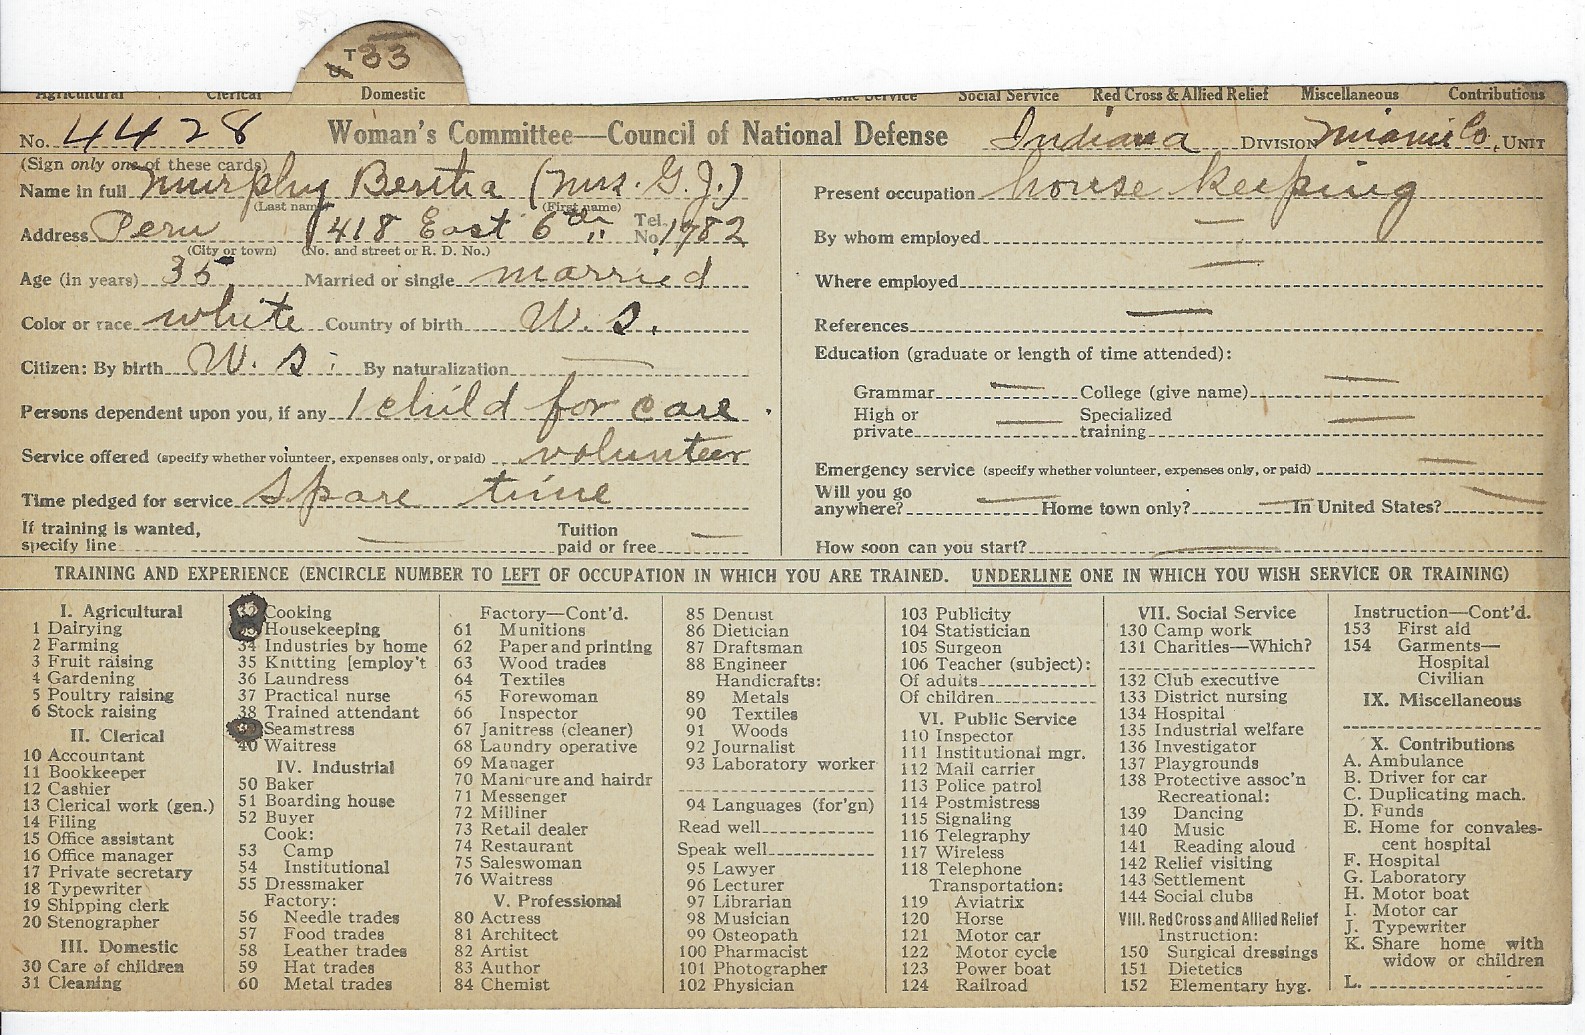 T 33
Agricultural Clerical Domestic Public Service Social Service Red Cross & Allied Relief Miscellaneous Contributions
No. 4428 Woman's Committee—Council of National Defense Indiana DIVISION Miami Co. UNIT
(Sign only one of these cards)
Name in full Murphy Bertha (Mrs. G. J.)
(Last name) (First name)
Address Peru 418 East 6th Tel. No. 1782
(City or town) (No. and street or R. D. No.)
Age (in years) 35 Married or single married
Color or race white Country of birth U. S.
Citizen: By birth U. S. By naturalization —
Persons dependent upon you, if any 1 child for care.
Service offered (specify whether volunteer, expenses only, or paid) volunteer
Time pledged for service spare time
If training is wanted, specify line — Tuition paid or free —
Present occupation house keeping
By whom employed —
Where employed —
References —
Education (graduate or length of time attended):
Grammar — College (give name) —
High or private — Specialized training —
Emergency service (specify whether volunteer, expenses only, or paid) —
Will you go anywhere? — Home town only? — In United States? —
How soon can you start? —
TRAINING AND EXPERIENCE (ENCIRCLE NUMBER TO LEFT OF OCCUPATION IN WHICH YOU ARE TRAINED. UNDERLINE ONE IN WHICH YOU WISH SERVICE OR TRAINING)
I. Agricultural
1 Dairying
2 Farming
3 Fruit raising
4 Gardening
5 Poultry raising
6 Stock raising
II. Clerical
10 Accountant
11 Bookkeeper
12 Cashier
13 Clerical work (gen.)
14 Filing
15 Office assistant
16 Office manager
17 Private secretary
18 Typewriter
19 Shipping clerk
20 Stenographer
III. Domestic
30 Care of children
31 Cleaning
Cooking
Housekeeping
34 Industries by home
35 Knitting [employ't
36 Laundress
37 Practical nurse
38 Trained attendant
Seamstress
40 Waitress
IV. Industrial
50 Baker
51 Boarding house
52 Buyer
Cook:
53 Camp
54 Institutional
55 Dressmaker
Factory:
56 Needle trades
57 Food trades
58 Leather trades
59 Hat trades
60 Metal trades
Factory—Cont'd.
61 Munitions
62 Paper and printing
63 Wood trades
64 Textiles
65 Forewoman
66 Inspector
67 Janitress (cleaner)
68 Laundry operative
69 Manager
70 Manicure and hairdr
71 Messenger
72 Milliner
73 Retail dealer
74 Restaurant
75 Saleswoman
76 Waitress
V. Professional
80 Actress
81 Architect
82 Artist
83 Author
84 Chemist
85 Dentist
86 Dietician
87 Draftsman
88 Engineer
Handicrafts:
89 Metals
90 Textiles
91 Woods
92 Journalist
93 Laboratory worker
94 Languages (for'gn)
Read well
Speak well
95 Lawyer
96 Lecturer
97 Librarian
98 Musician
99 Osteopath
100 Pharmacist
101 Photographer
102 Physician
103 Publicity
104 Statistician
105 Surgeon
106 Teacher (subject):
Of adults
Of children
VI. Public Service
110 Inspector
111 Institutional mgr.
112 Mail carrier
113 Police patrol
114 Postmistress
115 Signaling
116 Telegraphy
117 Wireless
118 Telephone
Transportation:
119 Aviatrix
120 Horse
121 Motor car
122 Motor cycle
123 Power boat
124 Railroad
VII. Social Service
130 Camp work
131 Charities—Which?
132 Club executive
133 District nursing
134 Hospital
135 Industrial welfare
136 Investigator
137 Playgrounds
138 Protective assoc'n
Recreational:
139 Dancing
140 Music
141 Reading aloud
142 Relief visiting
143 Settlement
144 Social clubs
VIII. Red Cross and Allied Relief
Instruction:
150 Surgical dressings
151 Dietetics
152 Elementary hyg.
Instruction—Cont'd.
153 First aid
154 Garments—
Hospital
Civilian
IX. Miscellaneous
X. Contributions
A. Ambulance
B. Driver for car
C. Duplicating mach.
D. Funds
E. Home for convales-
cent hospital
F. Hospital
G. Laboratory
H. Motor boat
I. Motor car
J. Typewriter
K. Share home with
widow or children
L.